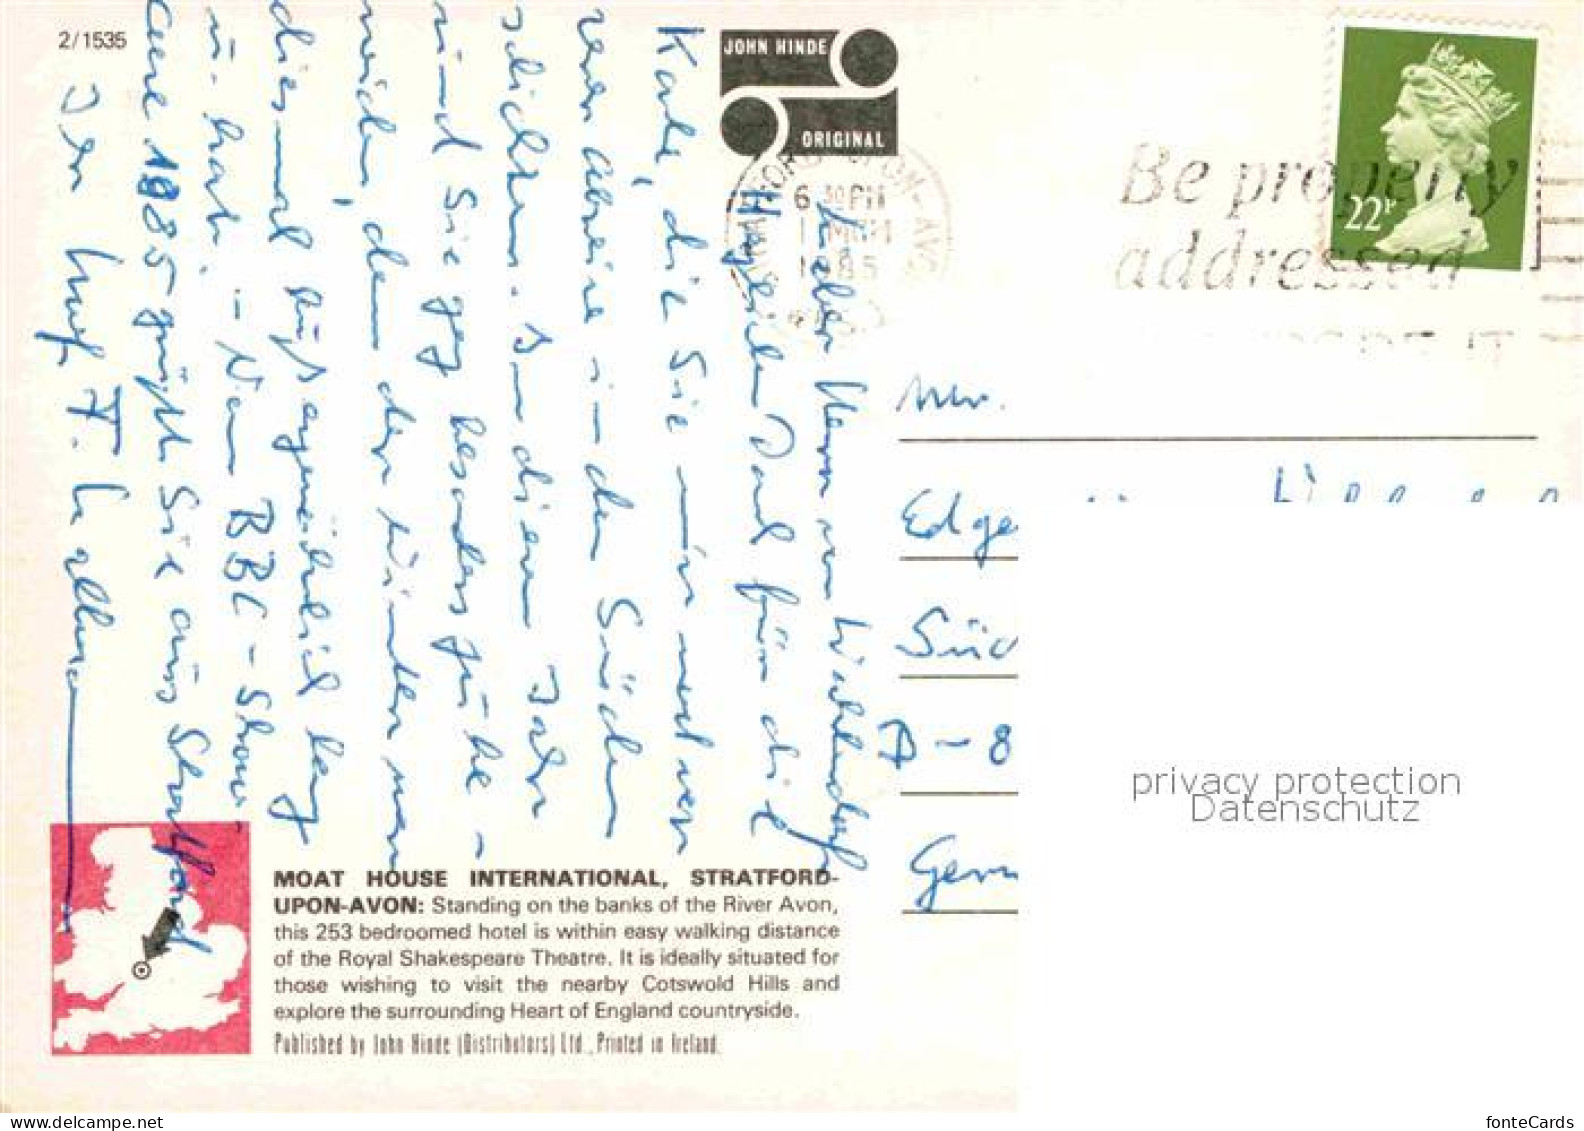 2/1535
JOHN HINDE
ORIGINAL
6 30 PM
1985
Be properly
addressed
22P
Lieber Herr von
Herzlichen Dank für die
Karte, die Sie mir vor
Ihrer Abreise in den Süden
schickten. In diesem Jahr
sind Sie ja besonders zu be-
neiden, denn der Winter war
diesmal lang
u. hart. – Von BBC-Show
1985 grüßt Sie aus Stratford
Ihr
Mr.
Edge
Süd
A-8
Germ
privacy protection
Datenschutz
MOAT HOUSE INTERNATIONAL, STRATFORD-
UPON-AVON: Standing on the banks of the River Avon,
this 253 bedroomed hotel is within easy walking distance
of the Royal Shakespeare Theatre. It is ideally situated for
those wishing to visit the nearby Cotswold Hills and
explore the surrounding Heart of England countryside.
Published by John Hinde (Distributors) Ltd., Printed in Ireland.
fonteCards